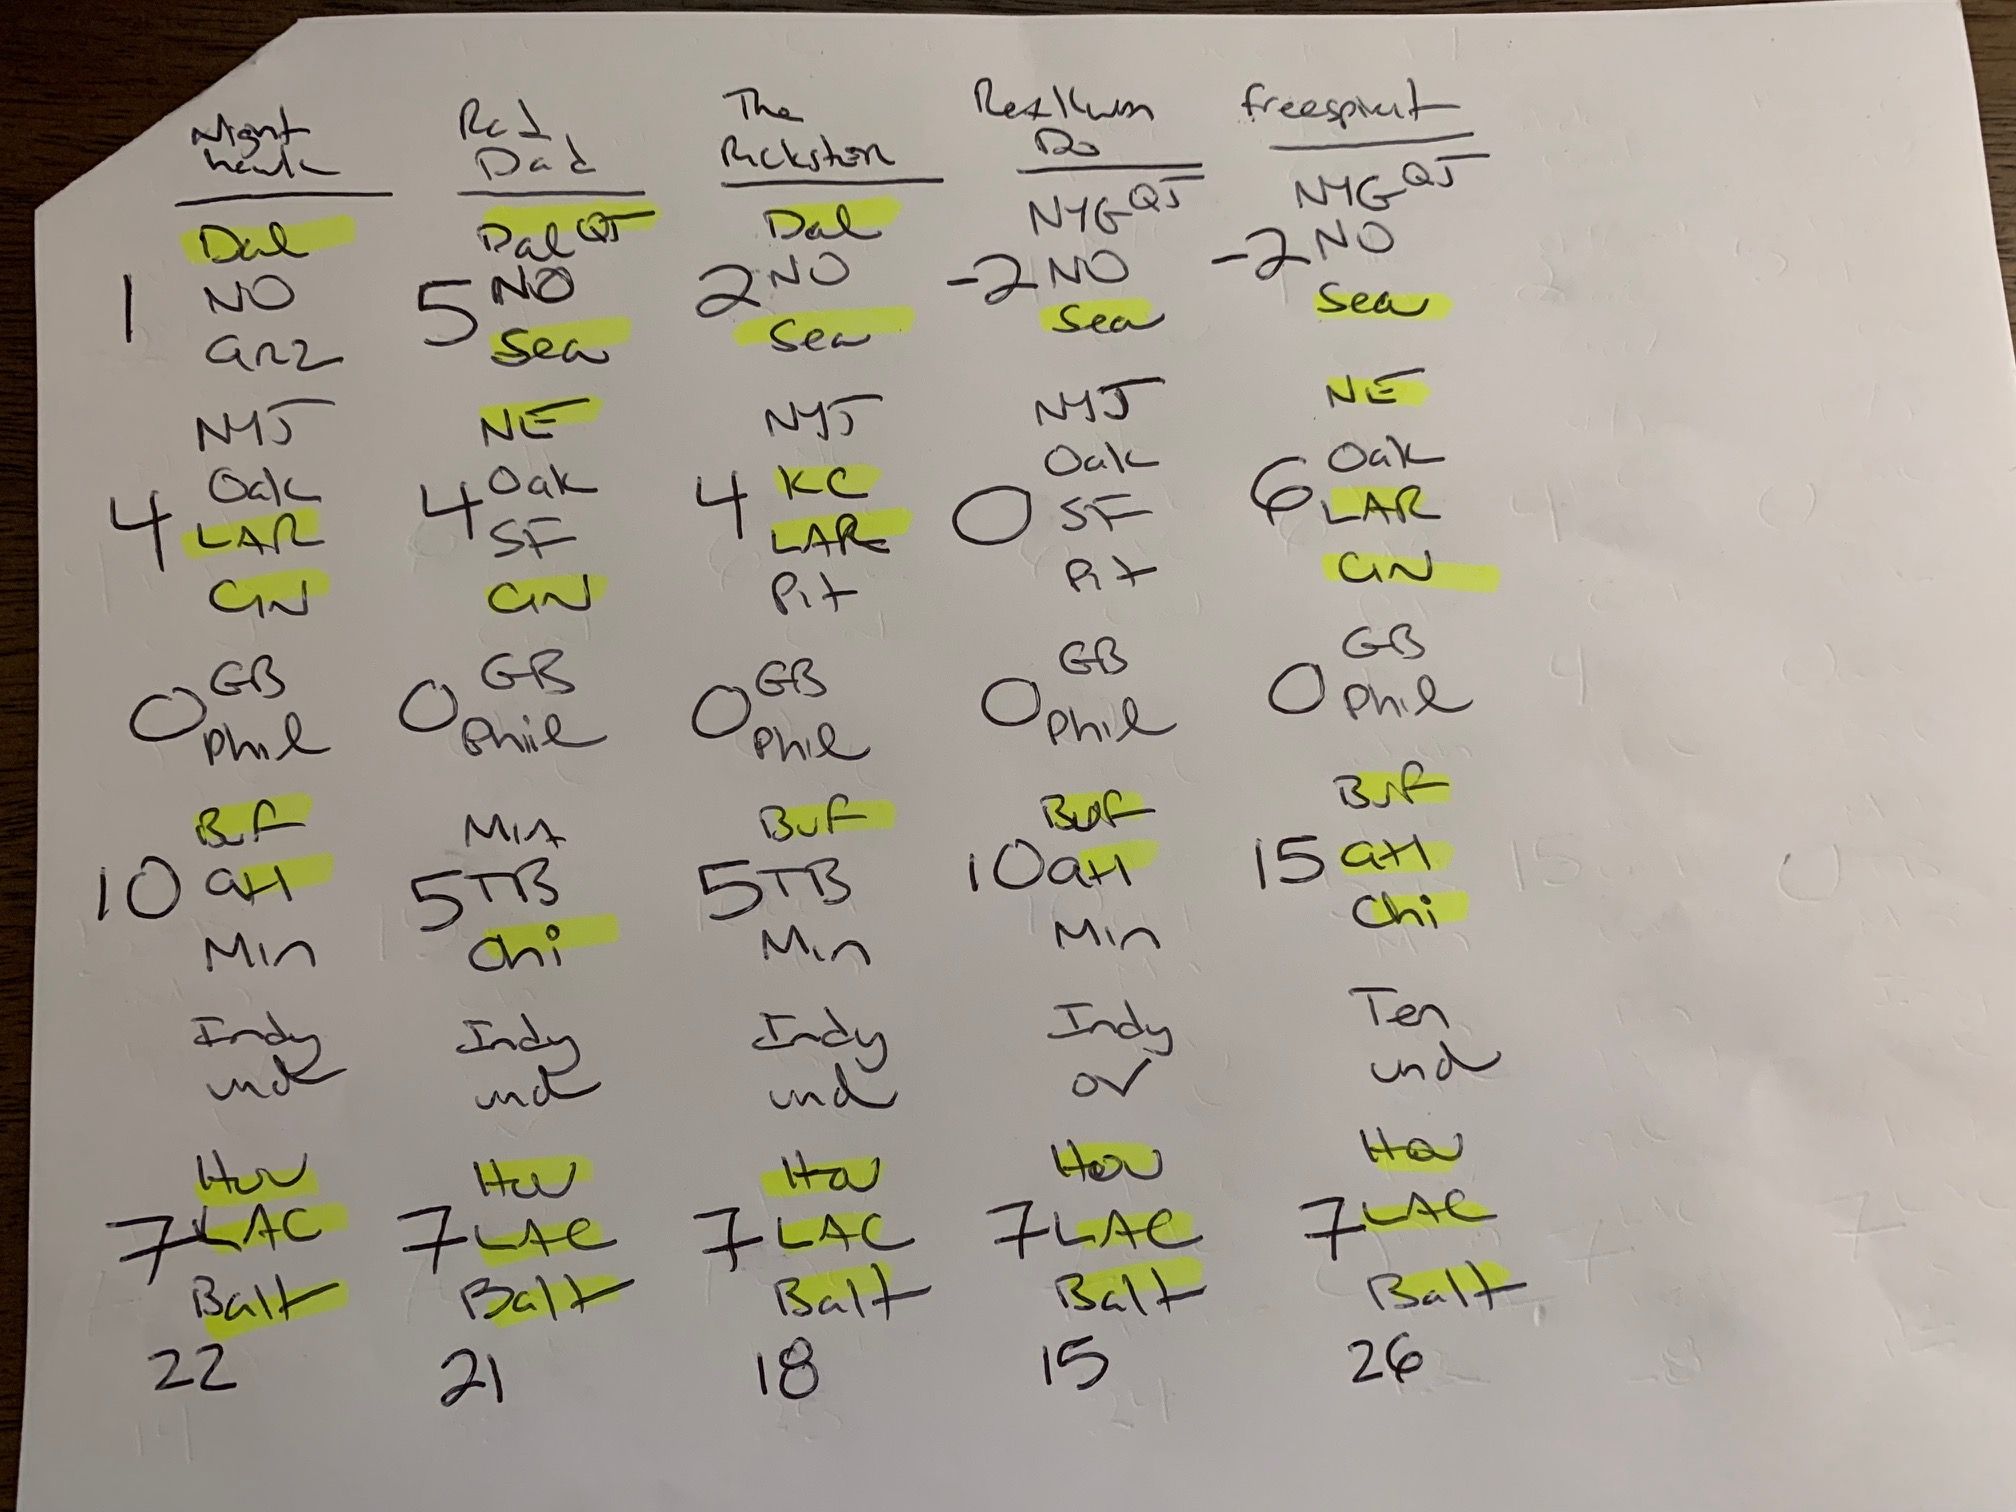 Night hawk
Rad Dad
The Pickster
RexKwon Do
freespirit
Dal Dal QJ Dal NYG QJ NYG QJ
1 NO 5 NO 2 NO -2 NO -2 NO
arz Sea Sea Sea Sea
NYJ NE NYJ NYJ NE
Oak Oak KC Oak Oak
4 LAR 4 SF 4 LAR 0 SF 6 LAR
CIN CIN Pit Pit CIN
GB GB GB GB GB
0 Phil 0 Phil 0 Phil 0 Phil 0 Phil
Buf MIA Buf Buf Buf
10 atl 5 TB 5 TB 10 atl 15 atl
Min Chi Min Min Chi
Indy Indy Indy Indy Ten
und und und ov und
Hou Hou Hou Hou Hou
7 LAC 7 LAC 7 LAC 7 LAC 7 LAC
Balt Balt Balt Balt Balt
22 21 18 15 26